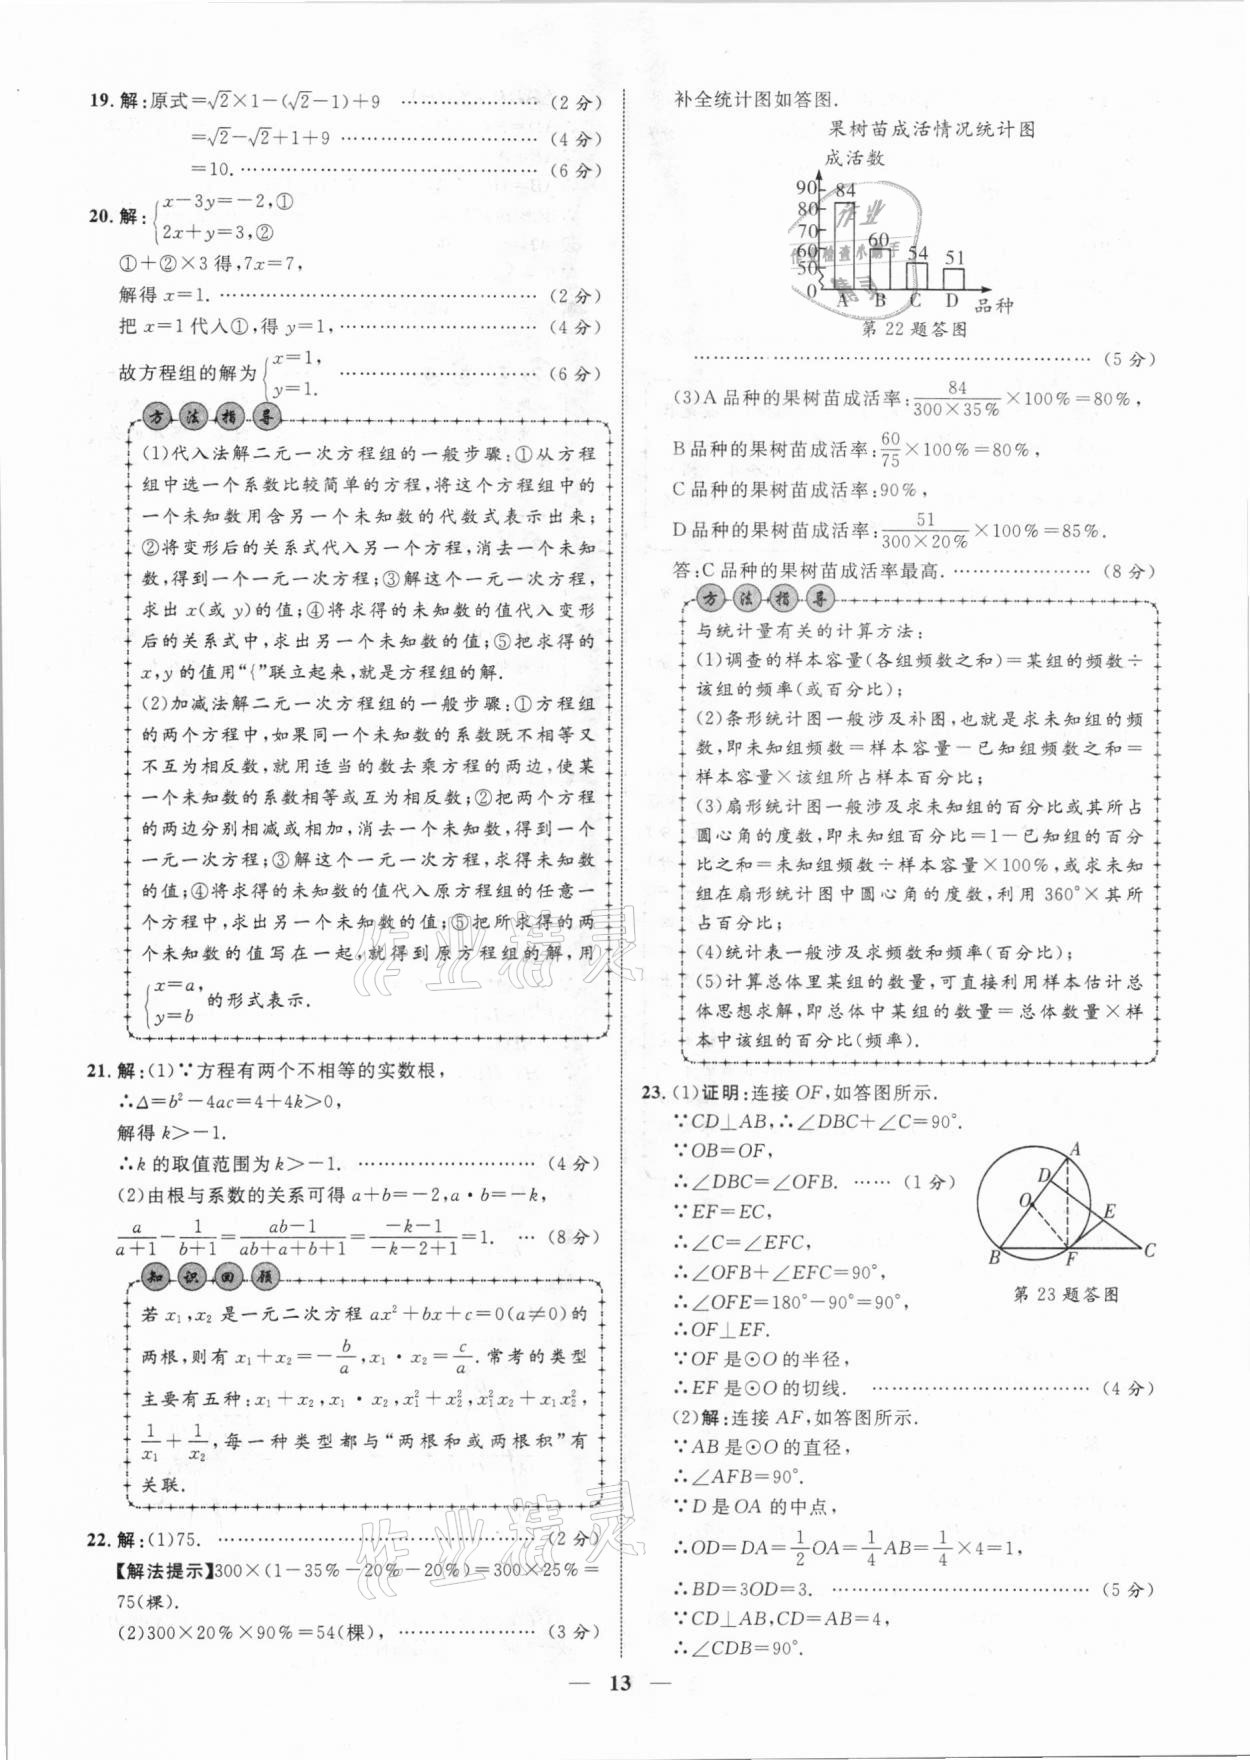 19. 解:原式=√2×1-(√2-1)+9 ………………… (2 分)
=√2-√2+1+9 ………………………… (4 分)
=10. …………………………………… (6 分)
20. 解:{x-3y=-2,①
2x+y=3,②
①+②×3得,7x=7,
解得 x=1. ………………………………………… (2 分)
把 x=1代入①,得 y=1, ………………………… (4 分)
故方程组的解为{x=1,
y=1. ………………………… (6 分)
方法指导
(1)代入法解二元一次方程组的一般步骤:①从方程
组中选一个系数比较简单的方程,将这个方程组中的
一个未知数用含另一个未知数的代数式表示出来;
②将变形后的关系式代入另一个方程,消去一个未知
数,得到一个一元一次方程;③解这个一元一次方程,
求出 x(或 y)的值;④将求得的未知数的值代入变形
后的关系式中,求出另一个未知数的值;⑤把求得的
x,y 的值用“{”联立起来,就是方程组的解.
(2)加减法解二元一次方程组的一般步骤:①方程组
的两个方程中,如果同一个未知数的系数既不相等又
不互为相反数,就用适当的数去乘方程的两边,使某
一个未知数的系数相等或互为相反数;②把两个方程
的两边分别相减或相加,消去一个未知数,得到一个
一元一次方程;③解这个一元一次方程,求得未知数
的值;④将求得的未知数的值代入原方程组的任意一
个方程中,求出另一个未知数的值;⑤把所求得的两
个未知数的值写在一起,就得到原方程组的解,用
{x=a,
y=b 的形式表示.
21. 解:(1)∵方程有两个不相等的实数根,
∴Δ=b²-4ac=4+4k>0,
解得 k>-1.
∴k 的取值范围为 k>-1. ……………………… (4 分)
(2)由根与系数的关系可得 a+b=-2,a·b=-k,
a/(a+1)-1/(b+1)=(ab-1)/(ab+a+b+1)=(-k-1)/(-k-2+1)=1. … (8 分)
知识回顾
若 x₁,x₂ 是一元二次方程 ax²+bx+c=0(a≠0)的
两根,则有 x₁+x₂=-b/a,x₁·x₂=c/a.常考的类型
主要有五种:x₁+x₂,x₁·x₂,x₁²+x₂²,x₁²x₂+x₁x₂²,
1/x₁+1/x₂,每一种类型都与“两根和或两根积”有
关联.
22. 解:(1)75. ………………………………………… (2 分)
【解法提示】300×(1-35%-20%-20%)=300×25%=
75(棵).
(2)300×20%×90%=54(棵), ………………… (3 分)
补全统计图如答图.
果树苗成活情况统计图
成活数
90
80
70
60
50
0
84
60
54
51
A B C D 品种
第 22 题答图
…………………………………………………… (5 分)
(3)A 品种的果树苗成活率:84/(300×35%)×100%=80%,
B 品种的果树苗成活率:60/75×100%=80%,
C 品种的果树苗成活率:90%,
D 品种的果树苗成活率:51/(300×20%)×100%=85%.
答:C 品种的果树苗成活率最高. ………………… (8 分)
方法指导
与统计量有关的计算方法:
(1)调查的样本容量(各组频数之和)=某组的频数÷
该组的频率(或百分比);
(2)条形统计图一般涉及补图,也就是求未知组的频
数,即未知组频数=样本容量-已知组频数之和=
样本容量×该组所占样本百分比;
(3)扇形统计图一般涉及求未知组的百分比或其所占
圆心角的度数,即未知组百分比=1-已知组的百分
比之和=未知组频数÷样本容量×100%,或求未知
组在扇形统计图中圆心角的度数,利用 360°×其所
占百分比;
(4)统计表一般涉及求频数和频率(百分比);
(5)计算总体里某组的数量,可直接利用样本估计总
体思想求解,即总体中某组的数量=总体数量×样
本中该组的百分比(频率).
23. (1)证明:连接 OF,如答图所示.
∵CD⊥AB,∴∠DBC+∠C=90°.
∵OB=OF,
∴∠DBC=∠OFB. …… (1 分)
∵EF=EC,
∴∠C=∠EFC,
∴∠OFB+∠EFC=90°,
∴∠OFE=180°-90°=90°,
∴OF⊥EF.
∵OF 是⊙O 的半径,
∴EF 是⊙O 的切线. …………………………… (4 分)
A
D
O
E
B
F
C
第 23 题答图
(2)解:连接 AF,如答图所示.
∵AB 是⊙O 的直径,
∴∠AFB=90°.
∵D 是 OA 的中点,
∴OD=DA=1/2OA=1/4AB=1/4×4=1,
∴BD=3OD=3. ………………………………… (5 分)
∵CD⊥AB,CD=AB=4,
∴∠CDB=90°.
— 13 —
作业精灵
作业精灵